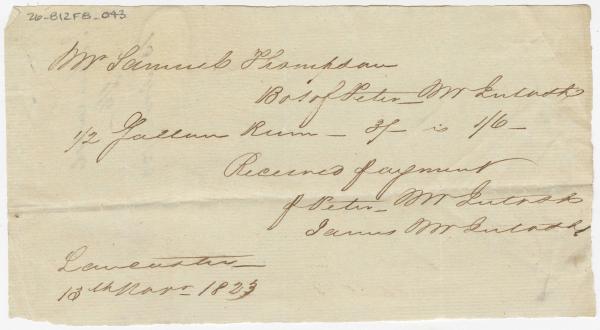 26-B12FB-043
Mr Samuel Thompson
Bot of Peter McIntosh
1/2 Gallon Rum - 3/- is 1/6 -
Received payment
f Peter McIntosh
James McIntosh
Lancaster
13th Novr 1823